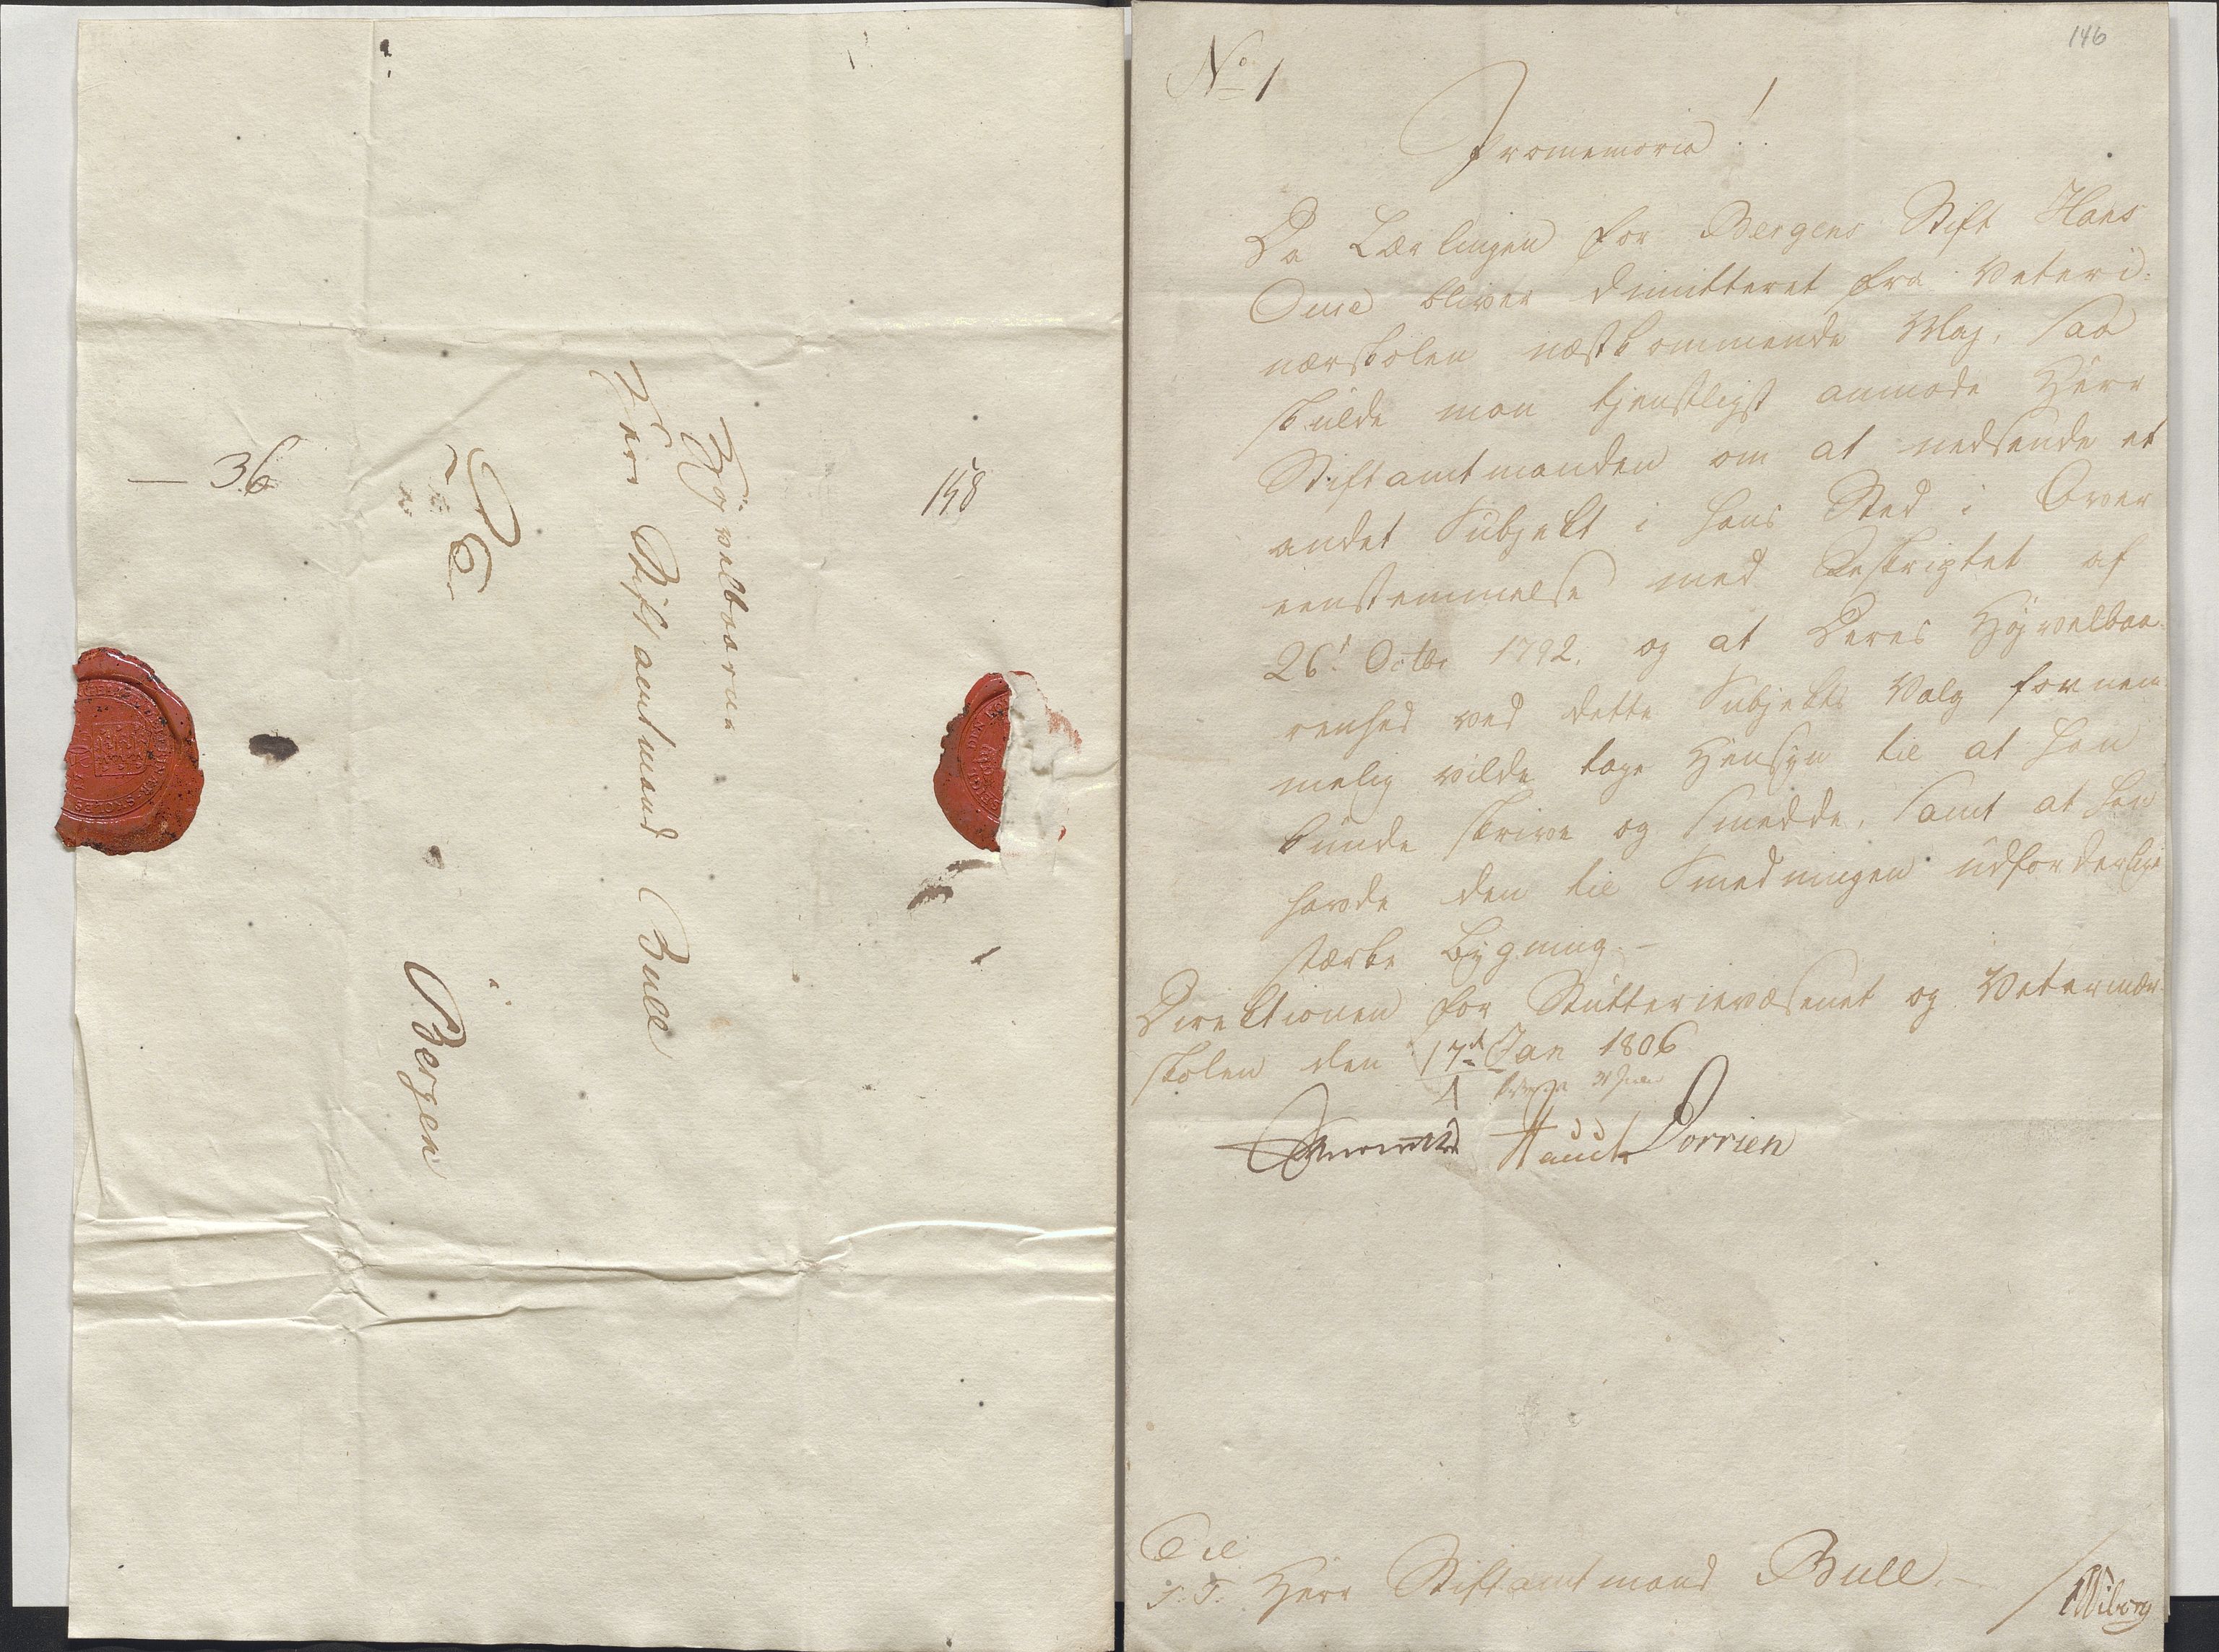 36
158
Höjvelbaarne
Herr Stiftamtmand Bull
Bergen
146
No 1
Promemoria!
Da Lærlingen for Bergens Stift Hans
Onse bliver dimitteret fra Veteri-
nærskolen næstkommende Maj, saa
skulde man tjenstligst anmode Herr
Stiftamtmanden om at nedsende et
andet Subjekt i hans Sted i Over
eenstemmelse med Reskriptet af
26d Octbr 1792, og at Deres Højvelbaa-
renhed ved dette Subjekts Valg fornem-
melig vilde tage Hensyn til at han
kunde skrive og smedde, samt at han
havde den til Smedningen udforderlige
stærke Bygning. -
Direktionen for Stutterievæsenet og Veterinær-
skolen den 17d Jan 1806
Hauch Dorrien
Til
S. T. Herr Stiftamtmand Bull. -
/ Wiborg